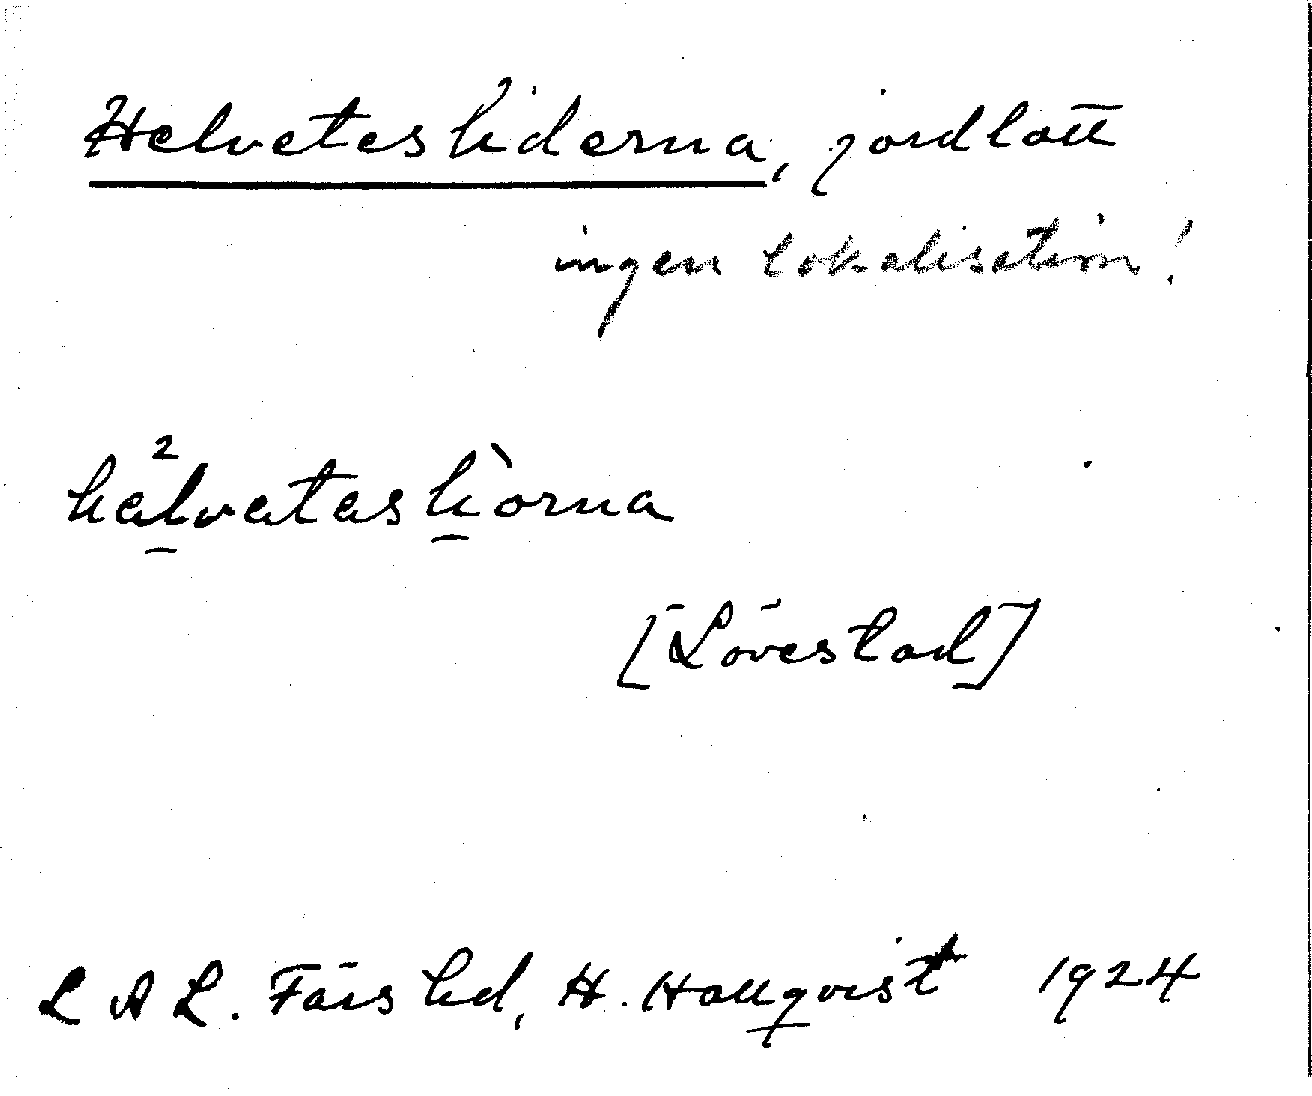 Helvetesliderna, jordlott
ingen lokalisation!
hälvetasliorna
[Lövestad]
LAL. Färs hd, H. Hallqvist 1924